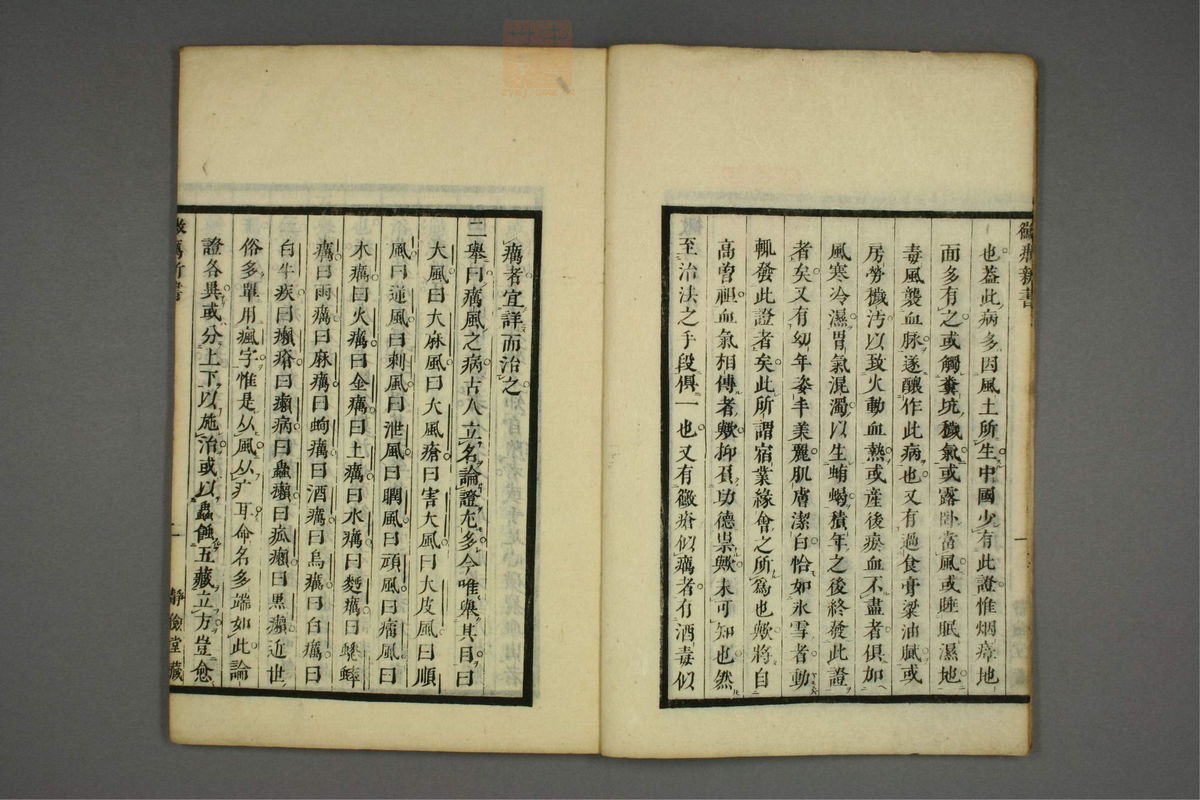 黴癘新書
也蓋此病多因風土所生中國少有此證惟烟瘴地
面多有之或觸糞坑穢氣或露卧當風或睡眠濕地
毒風襲血脉遂釀作此病也又有過食膏粱油膩或
房勞穢汚以致火動血熱或產後瘀血不盡者俱加
風寒冷濕胃氣混濁以生蛕蝎積年之後終發此證
者矣又有幼年姿丰美麗肌膚潔白恰如氷雪者動
輒發此證者矣此所謂宿業緣會之所爲也歟將自
高曾祖血氣相傳者歟抑召功德祟歟未可知也然
至治法之手段俱一也又有黴瘡似癘者有酒毒似
一
癘者宜詳而治之
二擧曰癘風之病古人立名論證尤多今唯擧其目曰
大風曰大麻風曰大風瘡曰害大風曰大皮風曰順
風曰逆風曰刺風曰泄風曰䐃風曰頑風曰癘風曰
木癘曰火癘曰金癘曰土癘曰水癘曰麪癘曰蟋蟀
癘曰雨癘曰麻癘曰蚼癘曰酒癘曰烏癘曰白癘曰
白牛疾曰癩瘡曰癩病曰蟲癩曰疬癩曰黑癩近世
俗多單用瘋字惟是从風从疒耳命名多端如此論
證各異或分上下以施治或以蟲蝕五藏立方豈愈
黴癘新書
二
靜儉堂藏